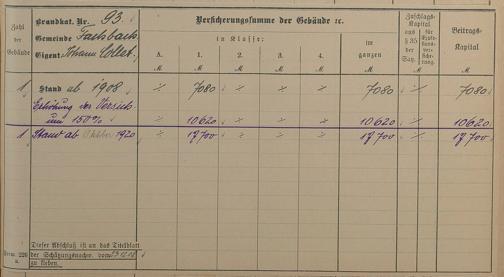 Zahl der Gebäude
Brandkat. Nr. 93.
Gemeinde Fachbach
Eigent. Johann
Versicherungssumme der Gebäude ꝛc.
in Klasse:
A. 1. 2. 3. 4. im ganzen
Zuschlags-Kapital aus § 35 der Sat.
für Explosions-versicherung.
Beitrags-Kapital
M M M M M M M M M
1 Stand ab 1908 7080 7080 7080
Erhöhung der Versich
um 150% 10620 10620 10620
1 Stand ab Oktober 1920 17700 17700 17700
Dieser Abschluß ist an das Titelblatt
der Schätzungsnachw. vom
zu kleben.